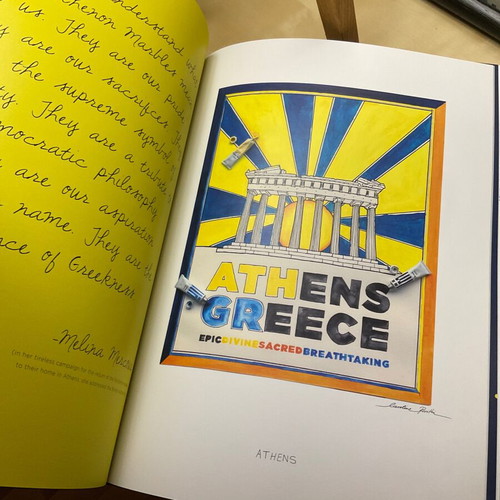 understand what
thenon Marbles mea
us. They are our pride.
y are our sacrifices. Th
the supreme symbol
ty. They are a tribute
mocratic philosophy.
are our aspiration
name. They are the
nce of Greekness.
-Melina Merc
(on her tireless campaign for the
to their home in Athens,
ATHENS
GREECE
EPICDIVINESACREDBREATHTAKING
ATHENS